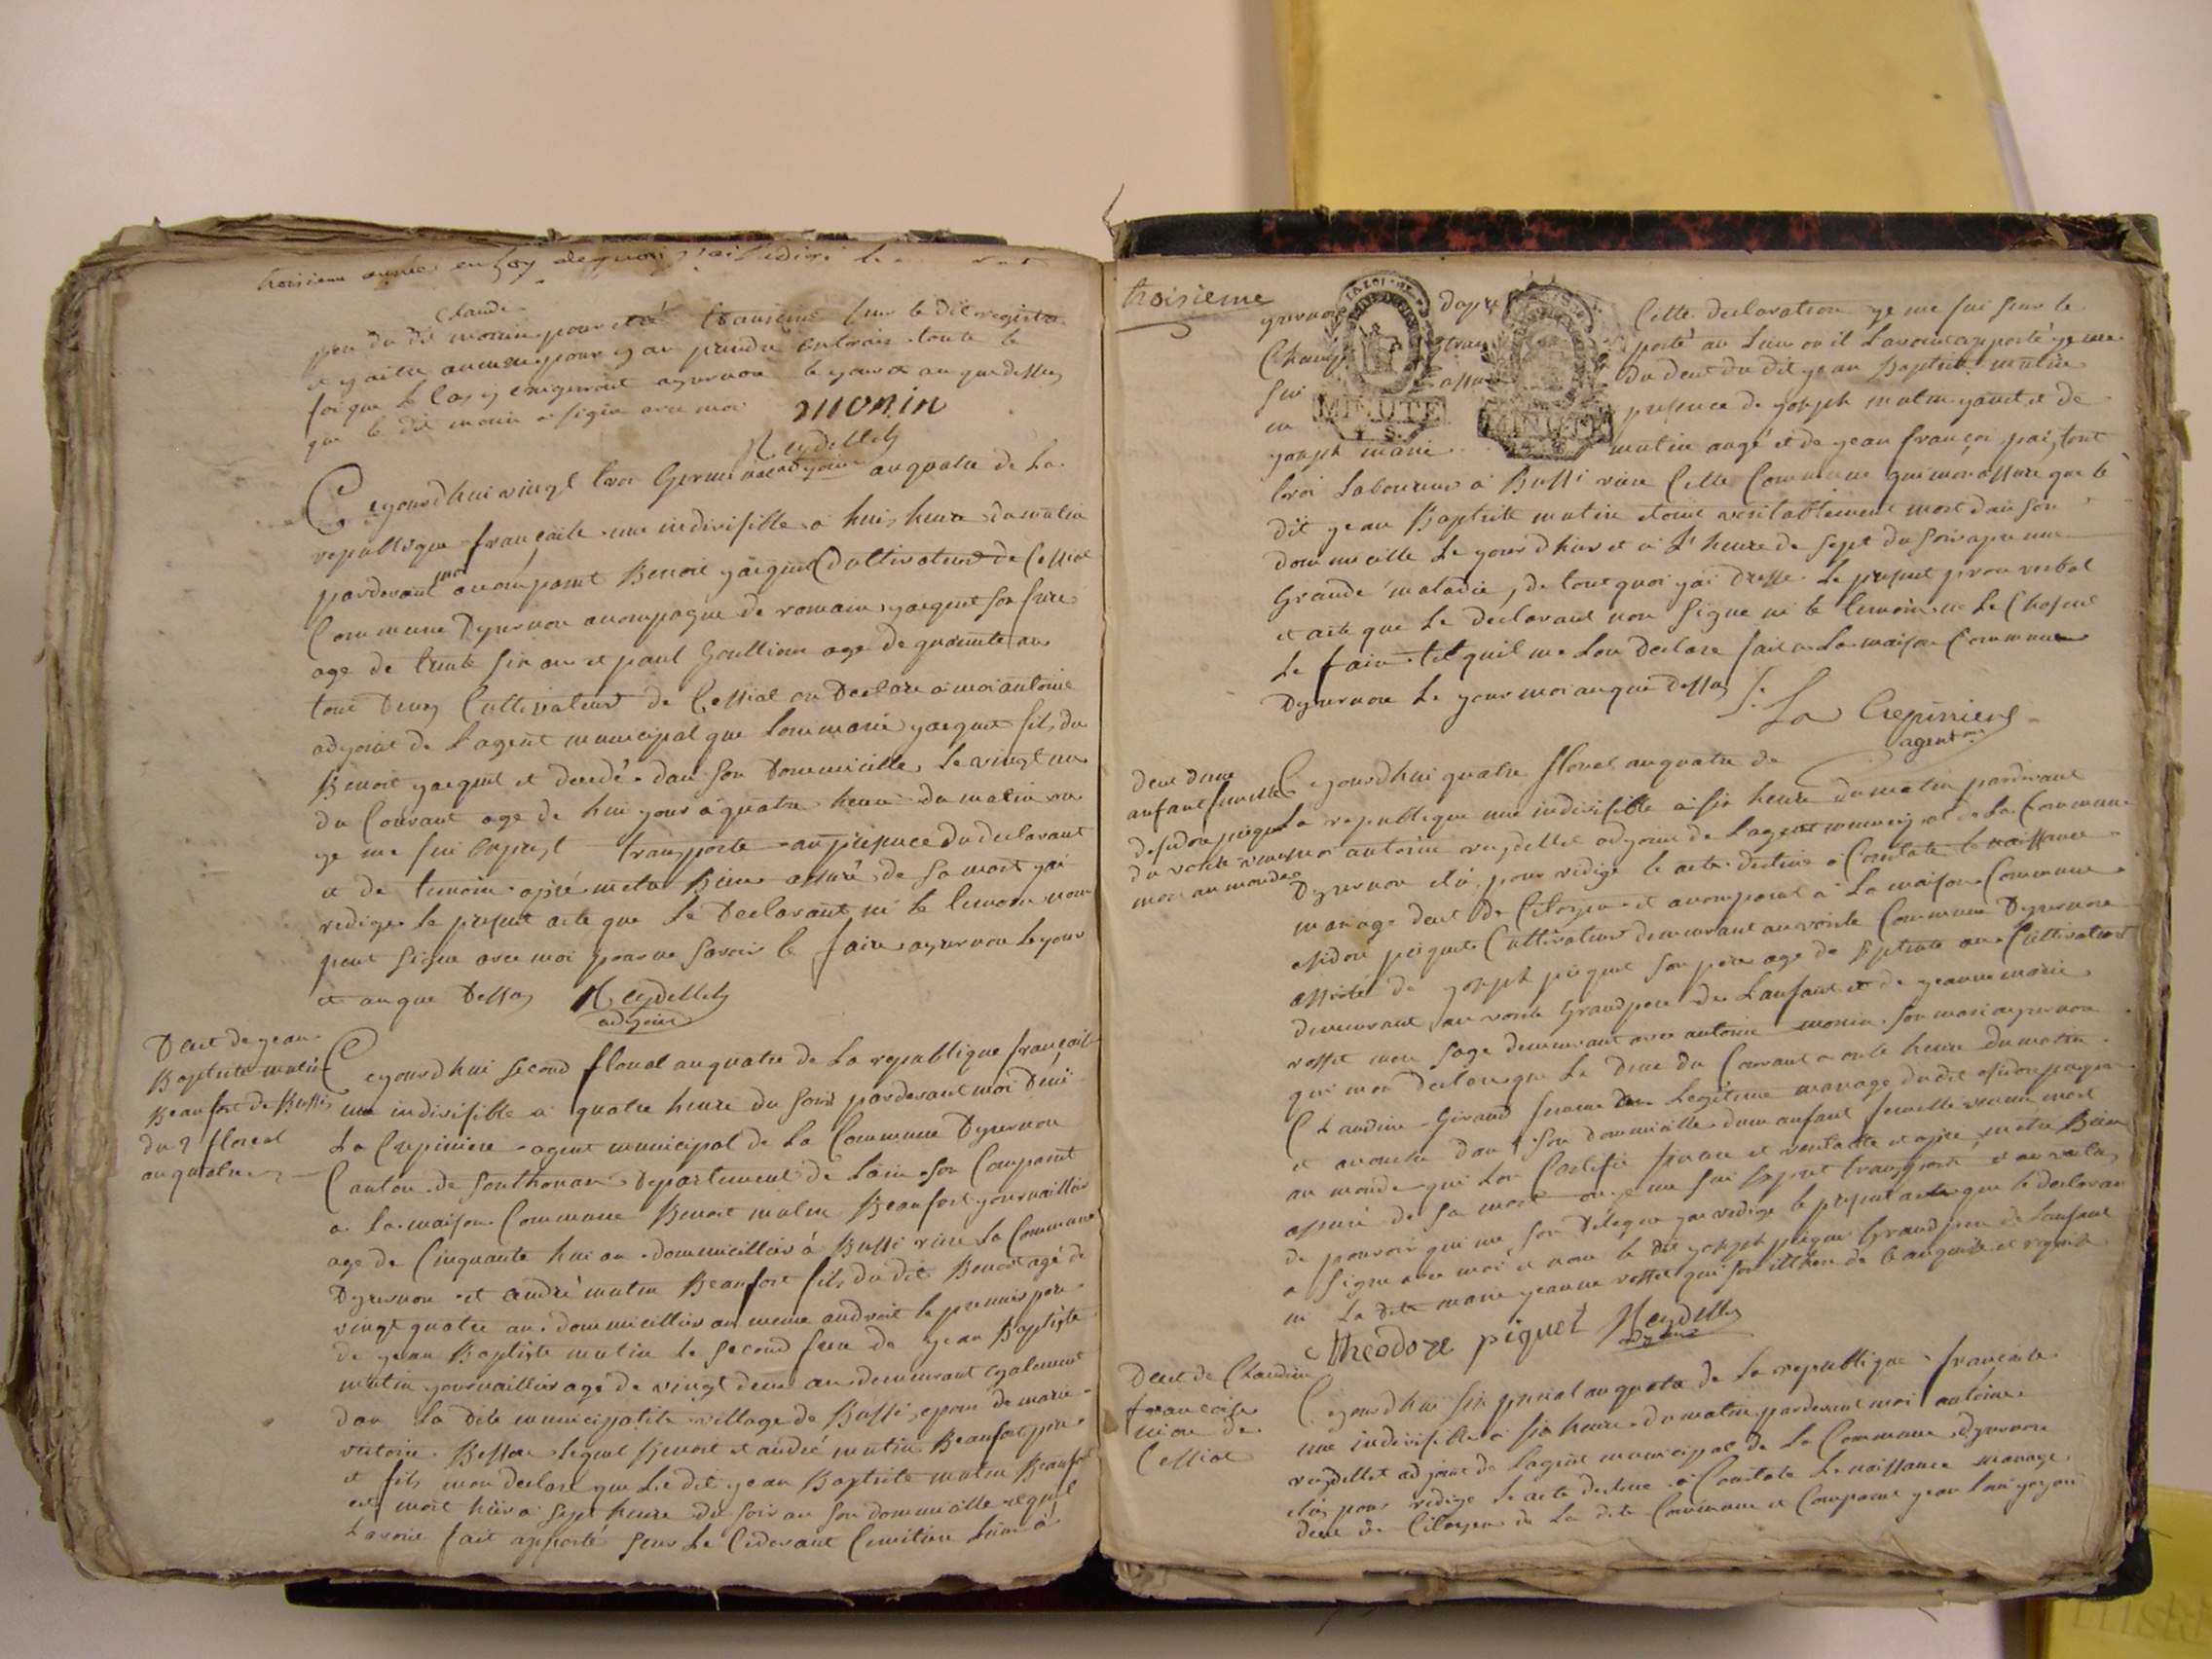 troisieme année en foy de quoi j'ai
Claude
du dit monin pour etre transcrit sur le dit registre
et y aitre pour y au prendre toute le
foi que le Cas y exigeront aysernon le your et an que dessus
que le dit monin a signe avec moi monin
Reydellet
adjoin
Ceyourdhui vingt troi Germinal an quatre de La
republique françaite une indivisible a hui heure du matin
pardevant moi a comparut Benoit yaiquet Cultivateur de Cessiat
Commune Dysernon acompagne de romain yaiquet son frere
age de trente six ans et paul Goullion age de quarente ans
tous Deux Cultivateur de Cessiat on Declare a moi antoine
adjoint de L'agent municipal que marie yaiquet fils du
Benoit yaiquet et decedé dans son Dommicille Le vingt un
du Courant age de hui your a quatre heure du matin ou
ye me sui transporte an presence du declarant
et de temoin apré metre Bien assuré de sa mort yai
redige le present acte que le Declarant ni le temoin non
peut signe avec moi pour ne savoir le faire aysernon le your
et an que Dessus Reydellet
adjoin
Deut de yean
Baptiste mutin
Beaufort de Bussi
du 2 floreal
an quatre
Ceyourdhui second floreal an quatre de La republique françaite
une indivisible a quatre heure du soir pardevant moi Deni
La Crepiniere agent municipal de La Commune Dysernon
Canton de Sonthonax Departement de Lain son Comparut
a La maison Commune Benoit mutin Beaufort yournaillier
age de Cinquante hui an dommicillier à Bussi riere La Commune
Dysernon et andré mutin Beaufort fils du dit Benoit agé de
vingt quatre an dommicillier au meme androit le premier pere
de yean Baptiste mutin le second frere de yean Baptiste
mutin yournaillier agé de vingt deux an demeurant egalement
dan La Dite municipalite village de Bussi epoux de marie
victoire Lequel Benoit et andré mutin Beaufort pere
et fils mon declare que Le dit yean Baptiste mutin Beaufort
est mort hier a sept heure du soir an son dommicille lequel
Lavoie fait apporté sur Le Cidevant Cimitiere
troisieme
ysernon Dapré Cette declaration ye me sui sur le
Champ tran porté au Lieu ou il Lavoie apporté ye me
sui assure du deut du dit yean Baptiste mutin
en presence de yoseph mutin et de
yoseph marie mutin augé et de yean françoi paig tout
troi Laboureur a Bussi riere Cette Commune qui mon assure que le
dit yean Baptiste mutin etoit veritablement mort dan son
dommicille Le your dhier et a L'heure de sept du soir apre une
Grande maladie, de tout quoi yai Dresse Le present proce verbal
et acte que Le declarant non signe ni le temoin
Le faire tel quil me Lon Declare fait a La maison Commune
Dysernon Le your moi an que Dessus
La Crepiniere
agent m
Deut dune
anfant femelle
du voile
mort au monde
Ceyourdhui quatre floreal an quatre de
La republique une indivisible a six heure du matin pardevant
moi antoine reydellet adjoint de Lagent municipal de La Commune
Dysernon elu pour redige le acte destiné a Constate le naissance
mariage deut de Citoyen et a comparut a La maison Commune
esidore piquet Cultivateur demeurant au voile Commune Dysernon
assisté de yoseph piquet son pere age de septente an Cultivateur
demeurant au voile Grand pere de Lanfant et de yeanne marie
rosset mere sage demeurant avec antoine monin son mari aysernon
qui mon declare que Le Deux du Courant a onze heure du matin
Claudine Girand femme Legitime mariage du dit esidore piquet
et acouche dan son dommicille dune anfant femelle venue mort
au monde qui Lon Certifie et veritable et apré metre Bien
assuré de sa mort ou ye me sui transporté et au vertu
de pouvoir qui me son Délégué yai redige le present acte que le declaran
a signe avec moi et non le dit yoseph piquet Grand pere de Lanfant
ni La Dite marie yeanne rosset qui son illitere de ce anquite et requit
theodore piquet Reydellet
adjoin
Deut de Claudine
francoise
de
Cessiat
Ceyourdhui six prerial an quatre de La republique françaite
une indivisible a six heure du matin pardevant moi antoine
reydellet adjoint de Lagent municipal de La Commune dysernon
elu pour redige Le acte destine a Constate Le naissance mariage
deut de Citoyen de La dite Commune et Comparut yean Loui